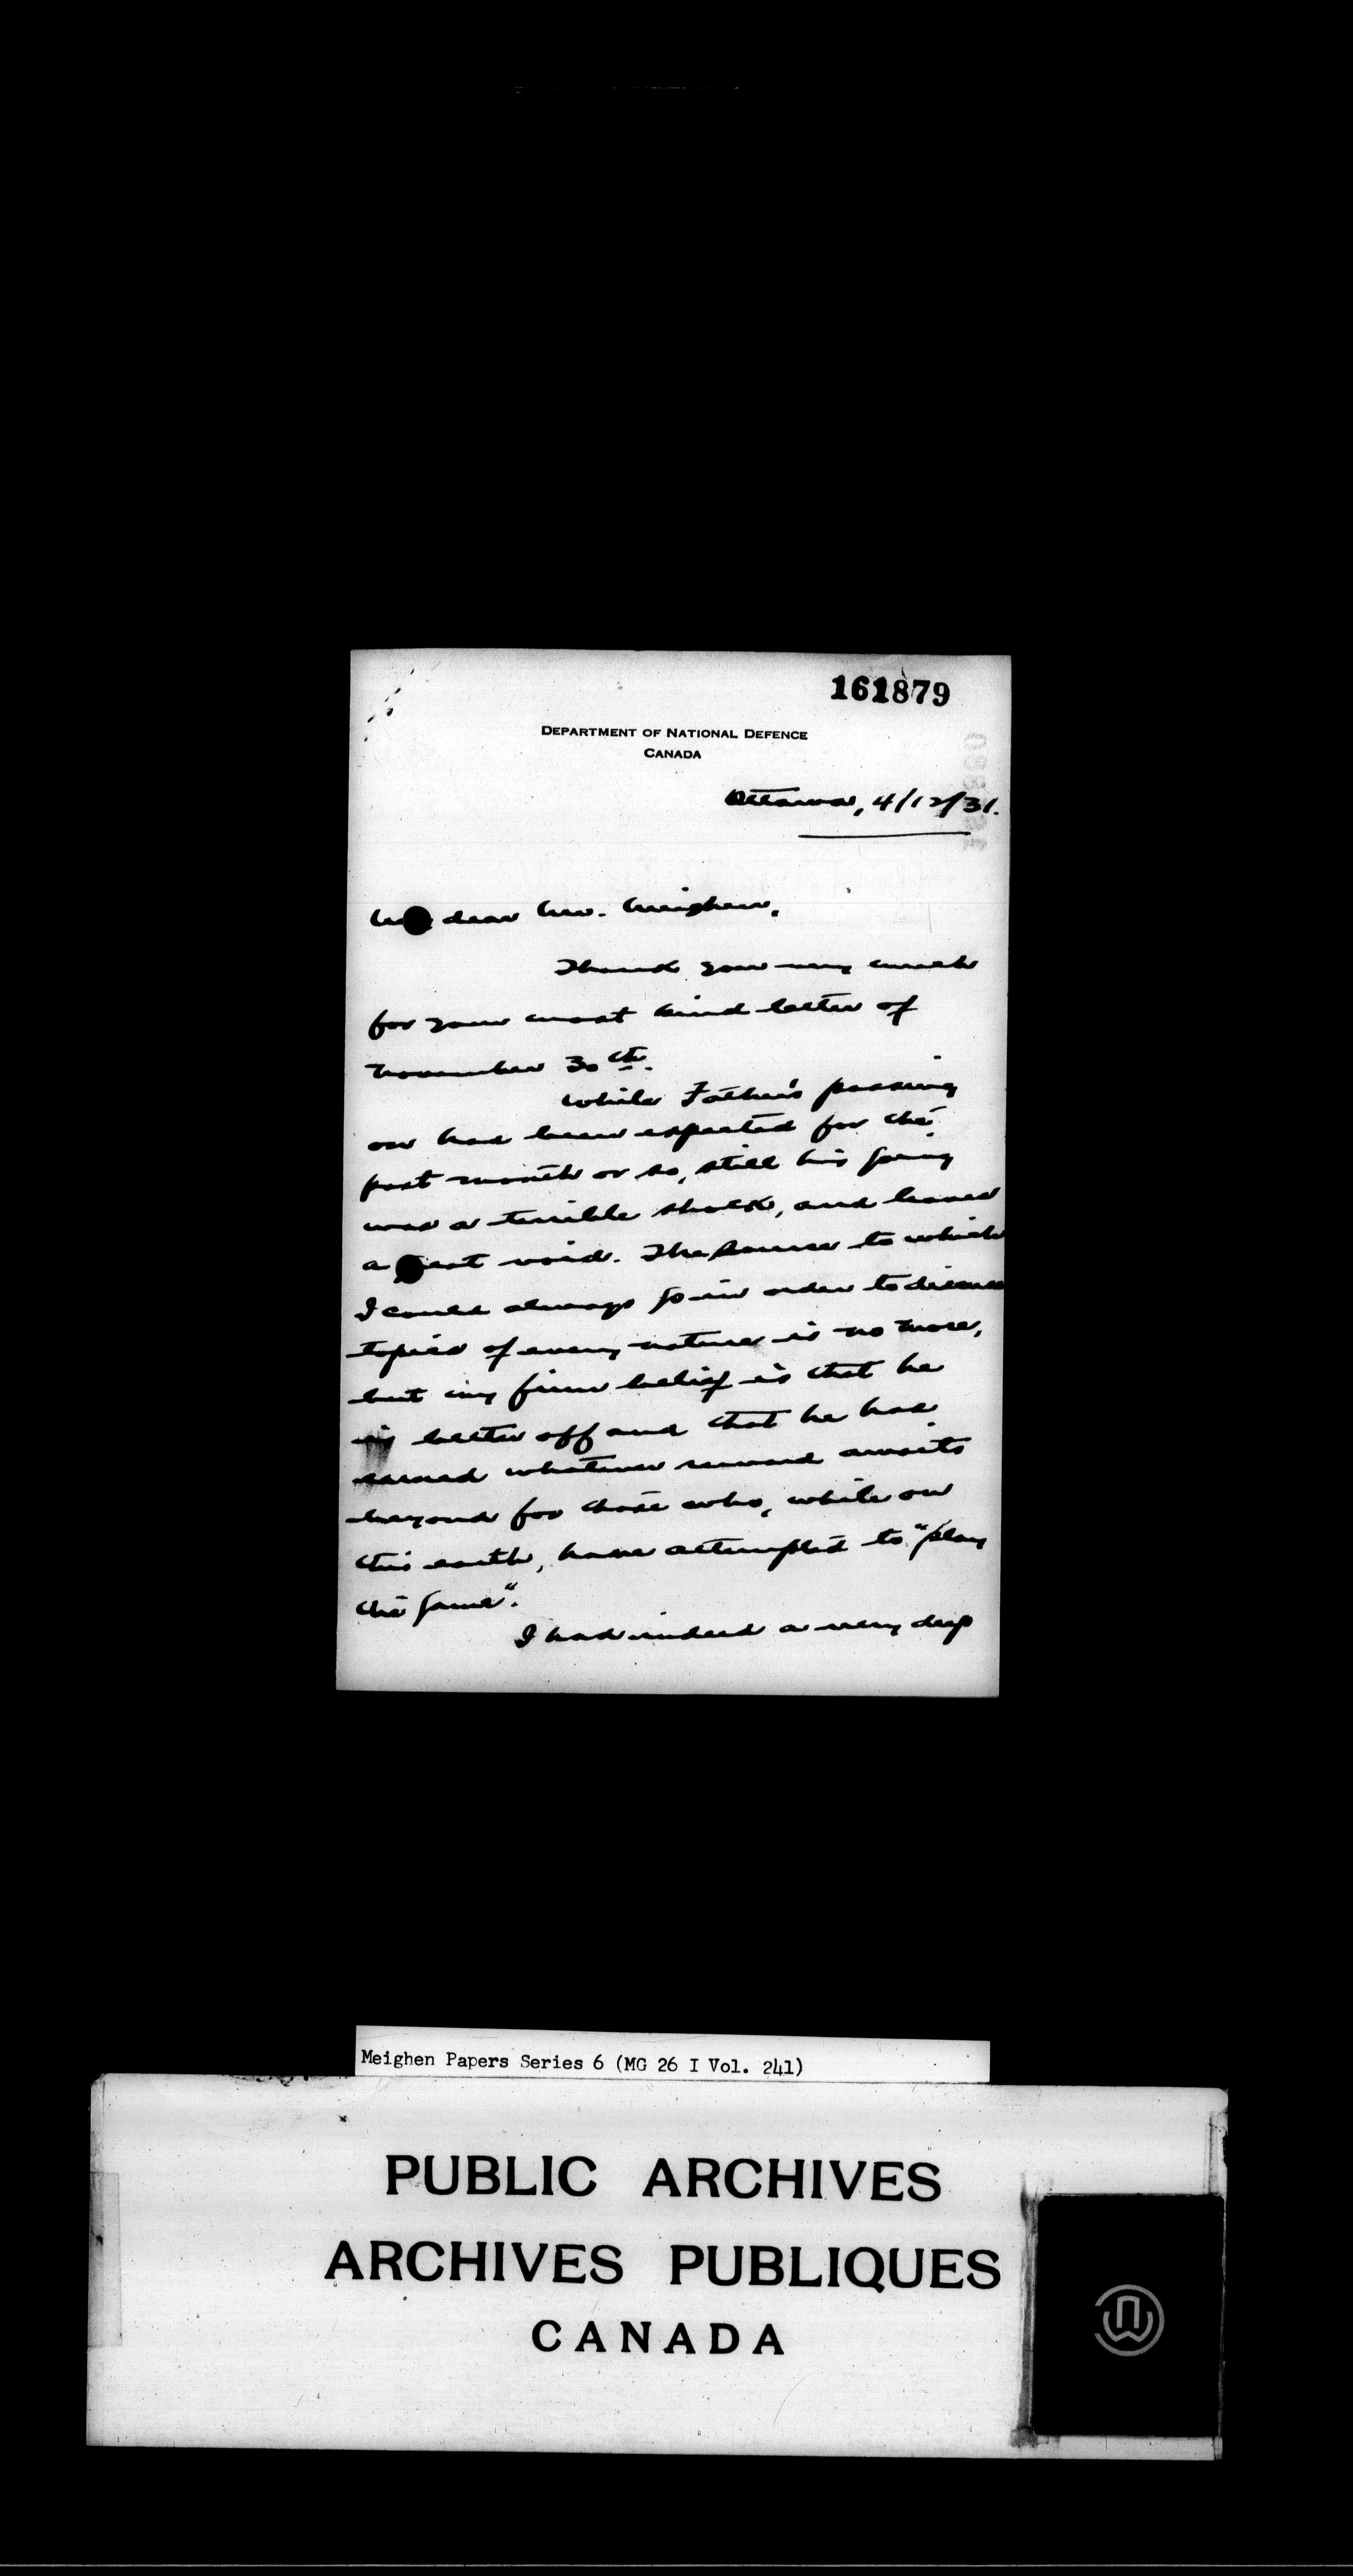 161879
DEPARTMENT OF NATIONAL DEFENCE
CANADA
Ottawa, 4/12/31.
My dear Mr. Meighen,
Thank you very much
for your most kind letter of
November 30th.
While Father's passing
on had been expected for the
past month or so, still his going
was a terrible shock, and leaves
a great void. The source to which
I could always go in order to discuss
topics of every nature is no more,
but my firm belief is that he
is better off and that he has
earned whatever reward awaits
beyond for those who, while on
this earth, have attempted to "play
the game".
I had indeed a very deep
Meighen Papers Series 6 (MG 26 I Vol. 241)
PUBLIC ARCHIVES
ARCHIVES PUBLIQUES
CANADA